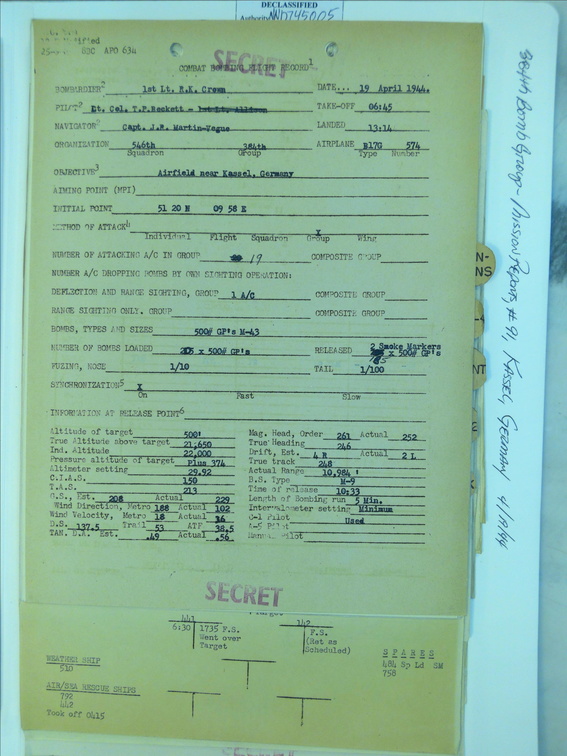 DECLASSIFIED
Authority NND745005
SECRET
COMBAT BOMBING FLIGHT RECORD1
BOMBARDIER2 1st Lt. R.K. Crown DATE... 19 April 1944.
PILOT2 Lt. Col. T.P.Beckett - 1st Lt. Allison TAKE-OFF 06:45
NAVIGATOR2 Capt. J.R. Martin-Vegue LANDED 13:14
ORGANIZATION 546th 384th AIRPLANE B17G 574
Squadron Group Type Number
OBJECTIVE3 Airfield near Kassel, Germany
AIMING POINT (MPI)
INITIAL POINT 51 20 N 09 58 E
METHOD OF ATTACK4 X
Individual Flight Squadron Group Wing
NUMBER OF ATTACKING A/C IN GROUP 19 COMPOSITE GROUP
NUMBER A/C DROPPING BOMBS BY OWN SIGHTING OPERATION:
DEFLECTION AND RANGE SIGHTING, GROUP 1 A/C COMPOSITE GROUP
RANGE SIGHTING ONLY, GROUP COMPOSITE GROUP
BOMBS, TYPES AND SIZES 500# GP's M-43
2 Smoke Markers
NUMBER OF BOMBS LOADED x 500# GP's RELEASED x 500# GP's
185
FUZING, NOSE 1/10 TAIL 1/100
SYNCHRONIZATION5 X
On Fast Slow
INFORMATION AT RELEASE POINT6
Altitude of target 500'
True Altitude above target 21,650
Ind. Altitude 22,000
Pressure altitude of target Plus 374
Altimeter setting 29.92
C.I.A.S. 150
T.A.S. 213
G.S., Est. 208 Actual 229
Wind Direction, Metro 188 Actual 102
Wind Velocity, Metro 18 Actual 16
D.S. 137.5 Trail 53 ATF 38.5
TAN. D.A. Est. .49 Actual .56
Mag. Head, Order 261 Actual 252
True Heading 246
Drift, Est. 4 R Actual 2 L
True track 248
Actual Range 10,984 '
B.S. Type M-9
Time of release 10:33
Length of Bombing run 5 Min.
Intervalometer setting Minimum
C-1 Pilot Used
A-5 Pilot
Manual Pilot
SECRET
441 142
6:30 1735 F.S.
Went over
Target
F.S.
(Not as
Scheduled)
SPARES
484 Sp Ld SM
758
WEATHER SHIP
510
AIR/SEA RESCUE SHIPS
792
442
Took off 0415
384th Bomb Group - Mission Reports, #91, Kassel, Germany 4/19/44